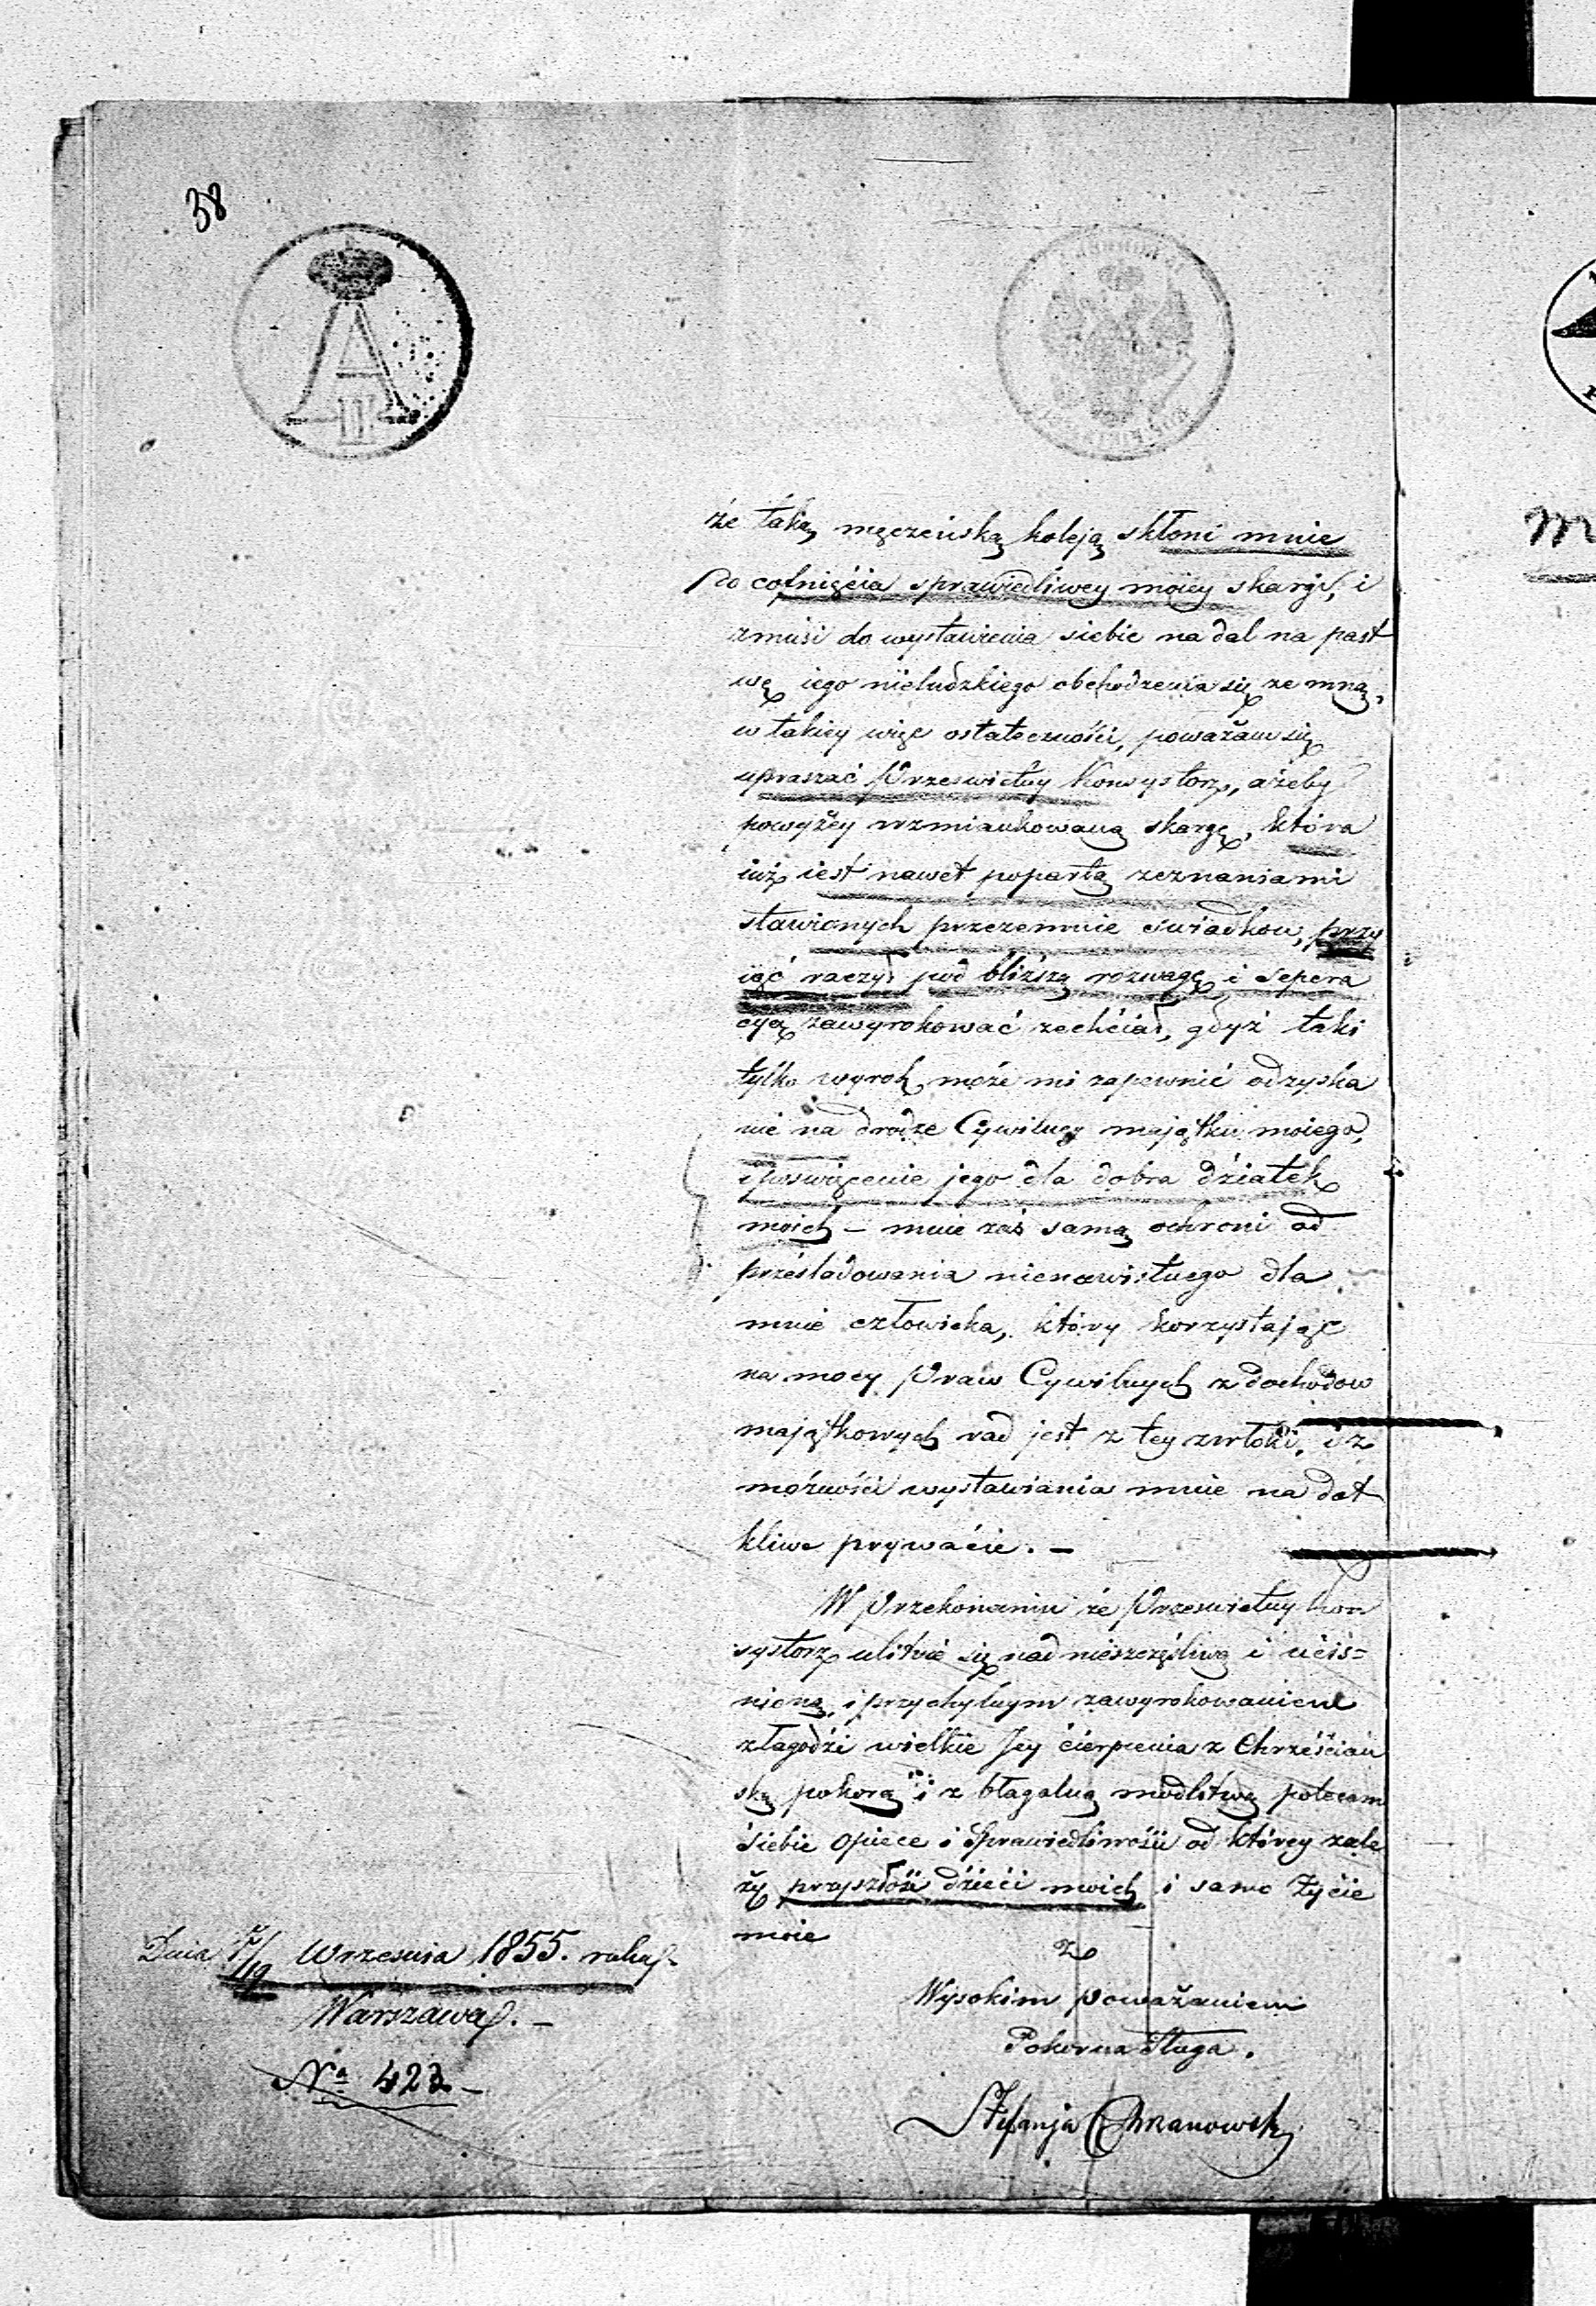 38
A
II
że taką męczeńską koleją skłoni mnie
do cofnięcia sprawiedliwey moiey skargi, i
zmusi do wystawienia siebie nadal na past
wę iego nieludzkiego obchodzenia się ze mną,
w takiey więc ostateczności, poważam się
upraszać Prześwietny Konsystorz, ażeby
powyżey wzmiankowaną skargę, która
iuż iest nawet popartą zeznaniami
stawionych przezemnie swiadkow, przy
iąć raczył pod bliższą rozwagę i sepera
cyą zawyrokować zechciał, gdyż taki
tylko wyrok może mi zapewnić odzyska
nie na drodze Cywilney majątku moiego,
i poswięcenie jego dla dobra dziatek
moich – mnie zaś samą ochroni od
prześladowania nienawistnego dla
mnie człowieka, który korzystając
na mocy Praw Cywilnych z dochodow
majątkowych rad jest z tey zwłoki, i z
możności wystawiania mnie na dot
kliwe prywacie. –
W Przekonaniu że Prześwietny Kon
systorz ulituie się nad nieszczęśliwą i uciś=
nioną, i przychylnym zawyrokowaniem
złagodzi wielkie Jey cierpienia z Chrześcian
ską pokorą i z błagalną modlitwą polecam
siebie opiece i Sprawiedliwości od którey zale
ży przyszłość dzieci moich i samo życie
moie
Dnia 7/19 Wrzesnia 1855. roku
Warszawa. –
Nº 423 –
z
Wysokim poważaniem
Pokorna Sługa.
Stefanja